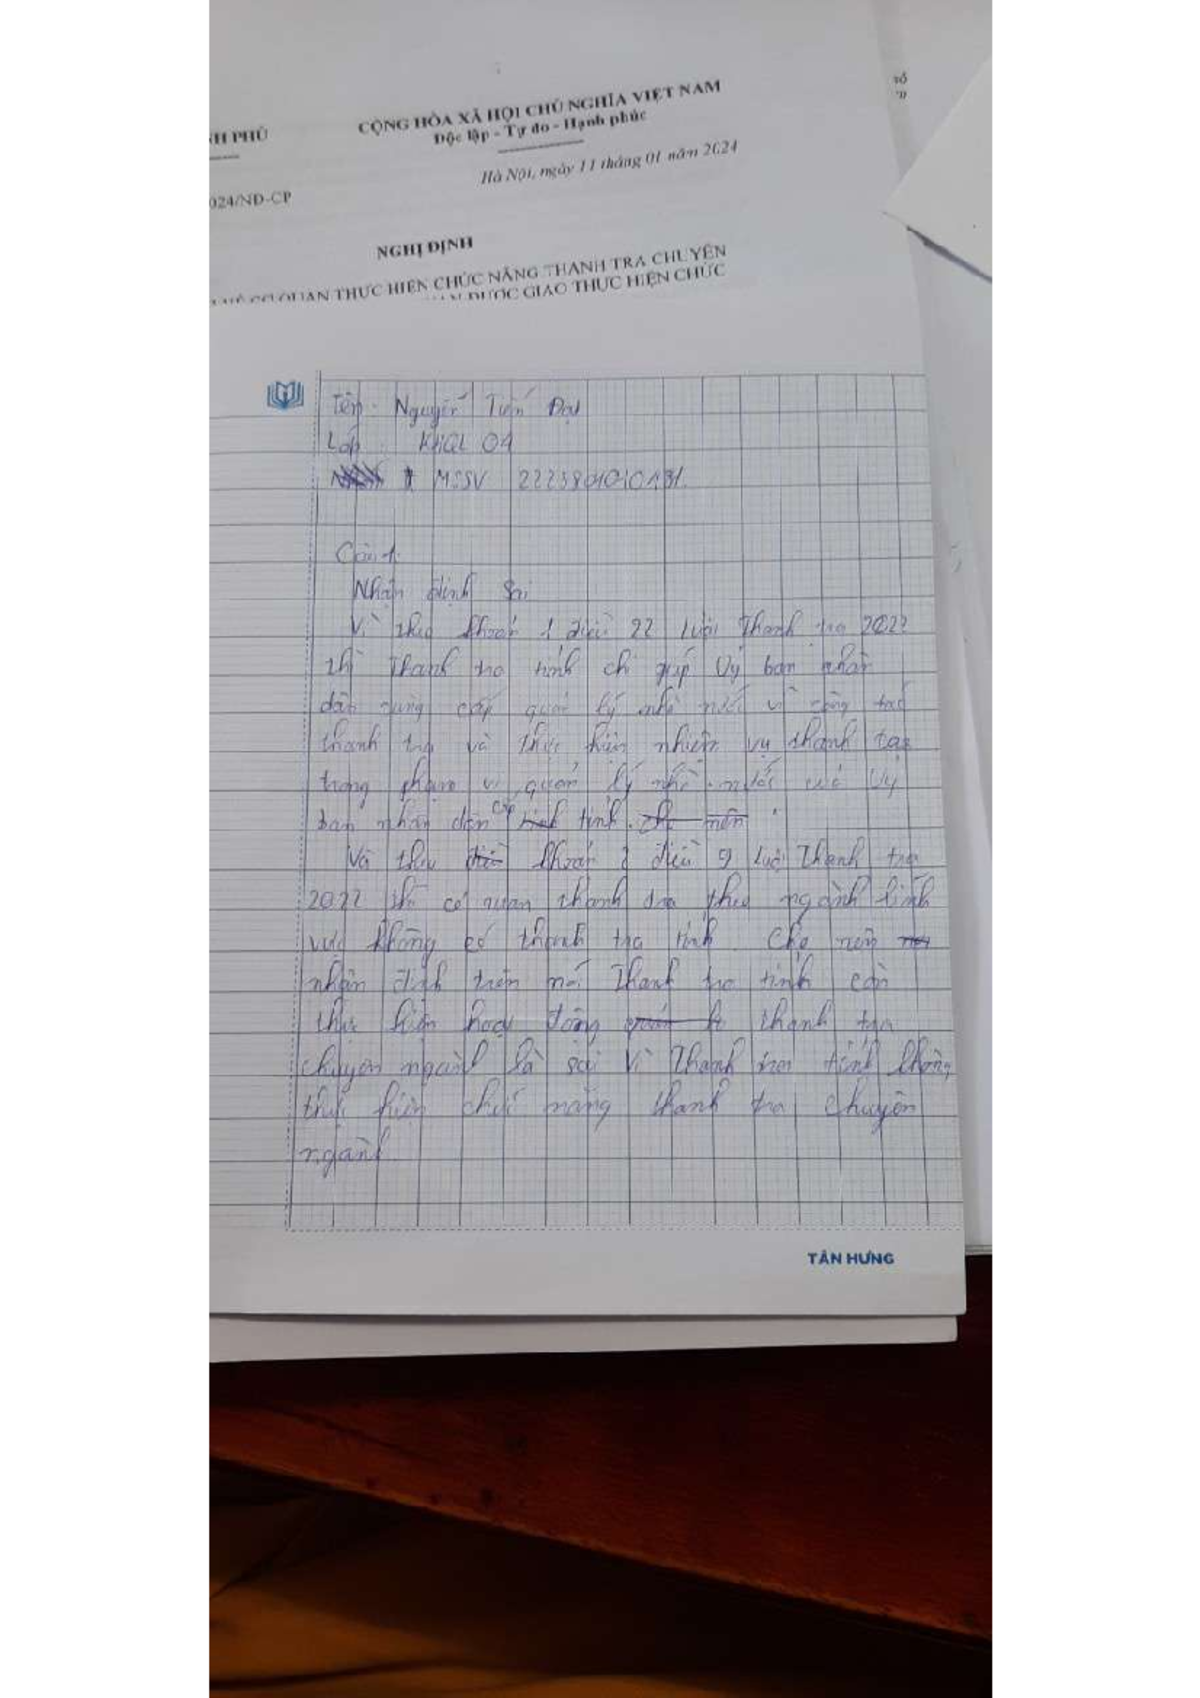 CỘNG HÒA XÃ HỘI CHỦ NGHĨA VIỆT NAM
NH PHỦ
Độc lập - Tự do - Hạnh phúc
Hà Nội, ngày 11 tháng 01 năm 2024
024/NĐ-CP
NGHỊ ĐỊNH
CƠ QUAN THỰC HIỆN CHỨC NĂNG THANH TRA CHUYÊN
ĐƯỢC GIAO THỰC HIỆN CHỨC
Tên: Nguyễn Tiến Đạt
Lớp KHQL 04
MSSV
Câu 1.
Nhận định Sai
Vì theo khoản 1 điều 22 Luật Thanh tra 2022
thì Thanh tra tỉnh chỉ giúp Uỷ ban nhân
dân cùng cấp quản lý nhà nước về công tác
thanh tra và thực hiện nhiệm vụ thanh tra
trong phạm vi quản lý nhà nước của Uỷ
ban nhân dân cấp tỉnh. cho nên
Và theo điều khoản 2 điều 9 Luật Thanh tra
2022 thì cơ quan thanh tra theo ngành lĩnh
vực không có thanh tra tỉnh. Cho nên
nhận định trên nói Thanh tra tỉnh còn
thực hiện hoạt động thanh tra
chuyên ngành là sai vì Thanh tra tỉnh không
thực hiện chức năng thanh tra chuyên
ngành
TÂN HƯNG